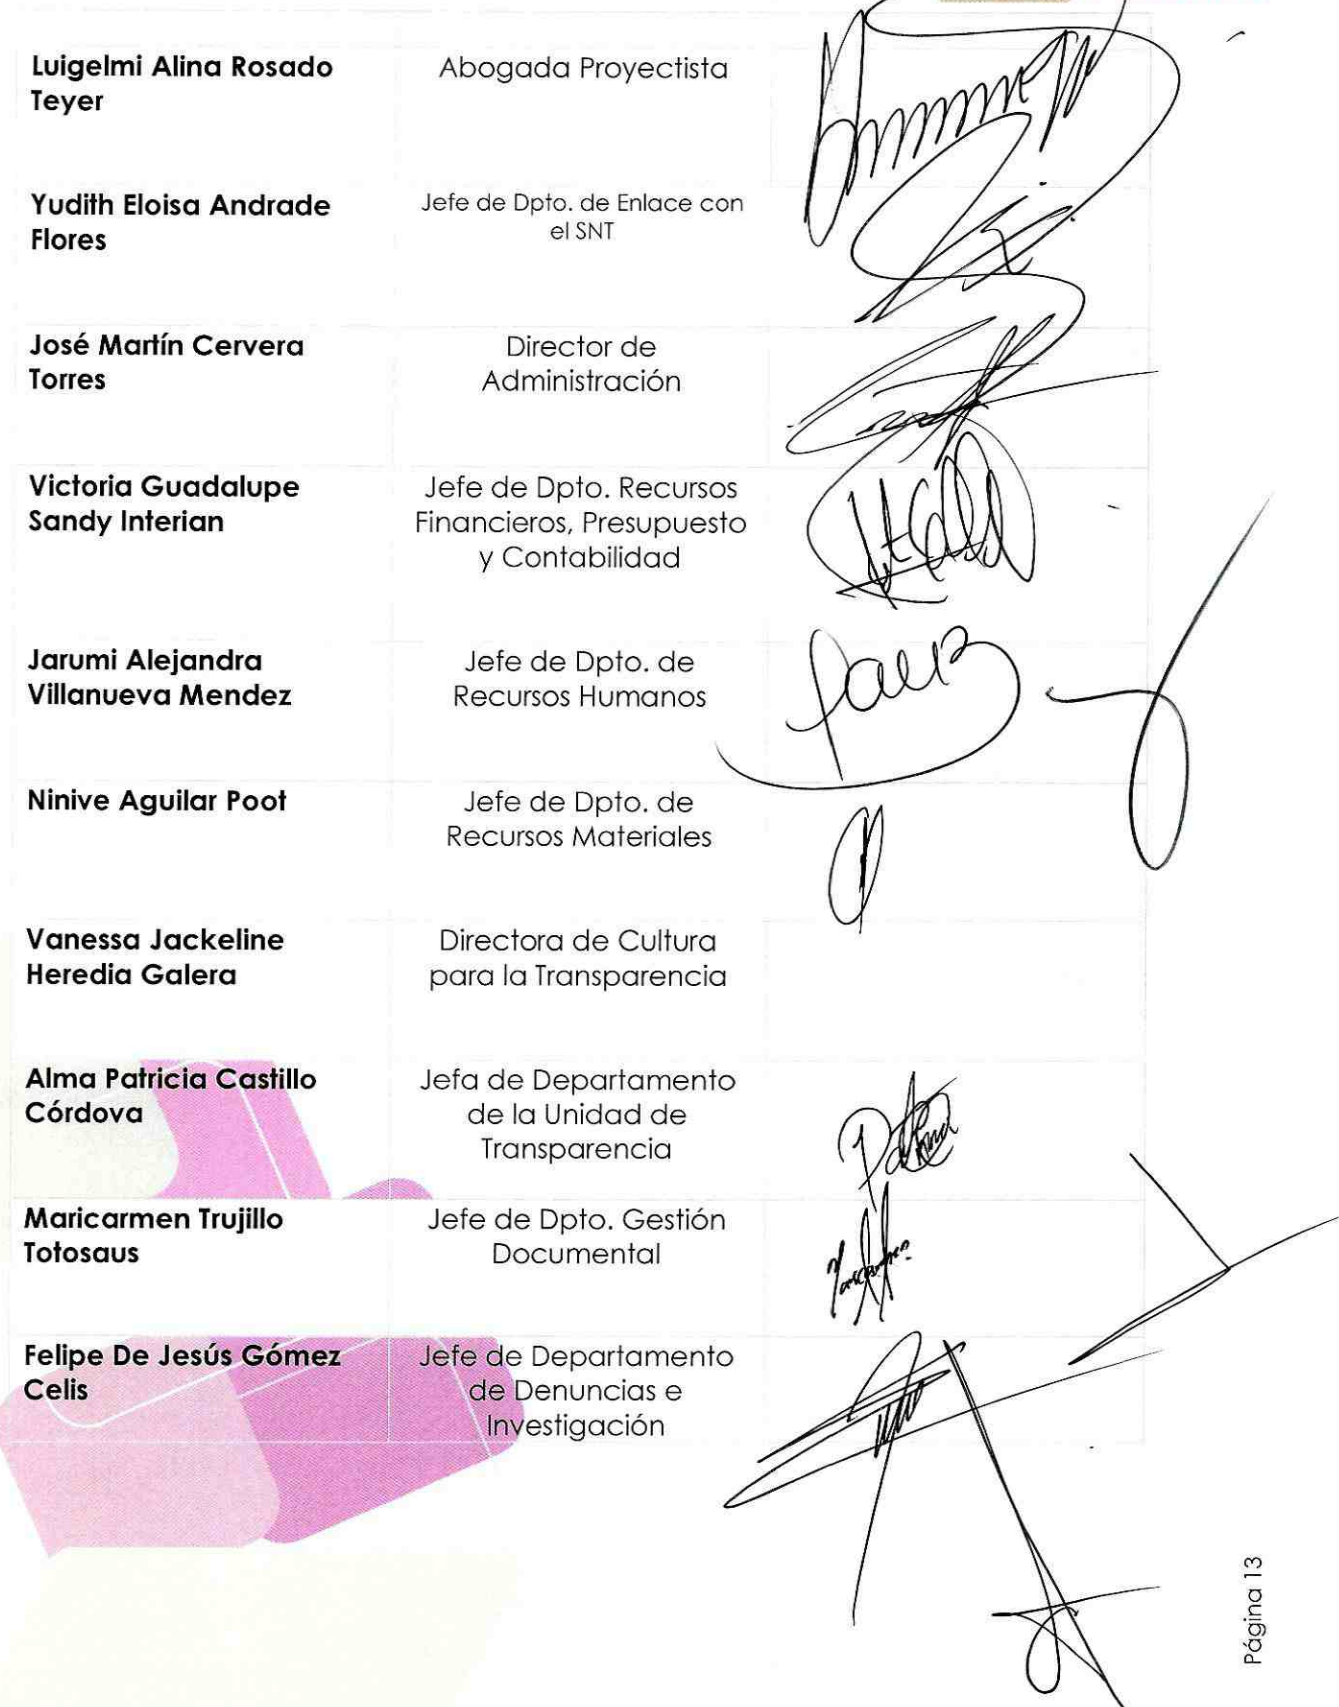 Luigelmi Alina Rosado
Teyer
Abogada Proyectista
Yudith Eloisa Andrade
Flores
Jefe de Dpto. de Enlace con
el SNT
José Martín Cervera
Torres
Director de
Administración
Victoria Guadalupe
Sandy Interian
Jefe de Dpto. Recursos
Financieros, Presupuesto
y Contabilidad
Jarumi Alejandra
Villanueva Mendez
Jefe de Dpto. de
Recursos Humanos
Ninive Aguilar Poot
Jefe de Dpto. de
Recursos Materiales
Vanessa Jackeline
Heredia Galera
Directora de Cultura
para la Transparencia
Alma Patricia Castillo
Córdova
Jefa de Departamento
de la Unidad de
Transparencia
Maricarmen Trujillo
Totosaus
Jefe de Dpto. Gestión
Documental
Felipe De Jesús Gómez
Celis
Jefe de Departamento
de Denuncias e
Investigación
Página 13